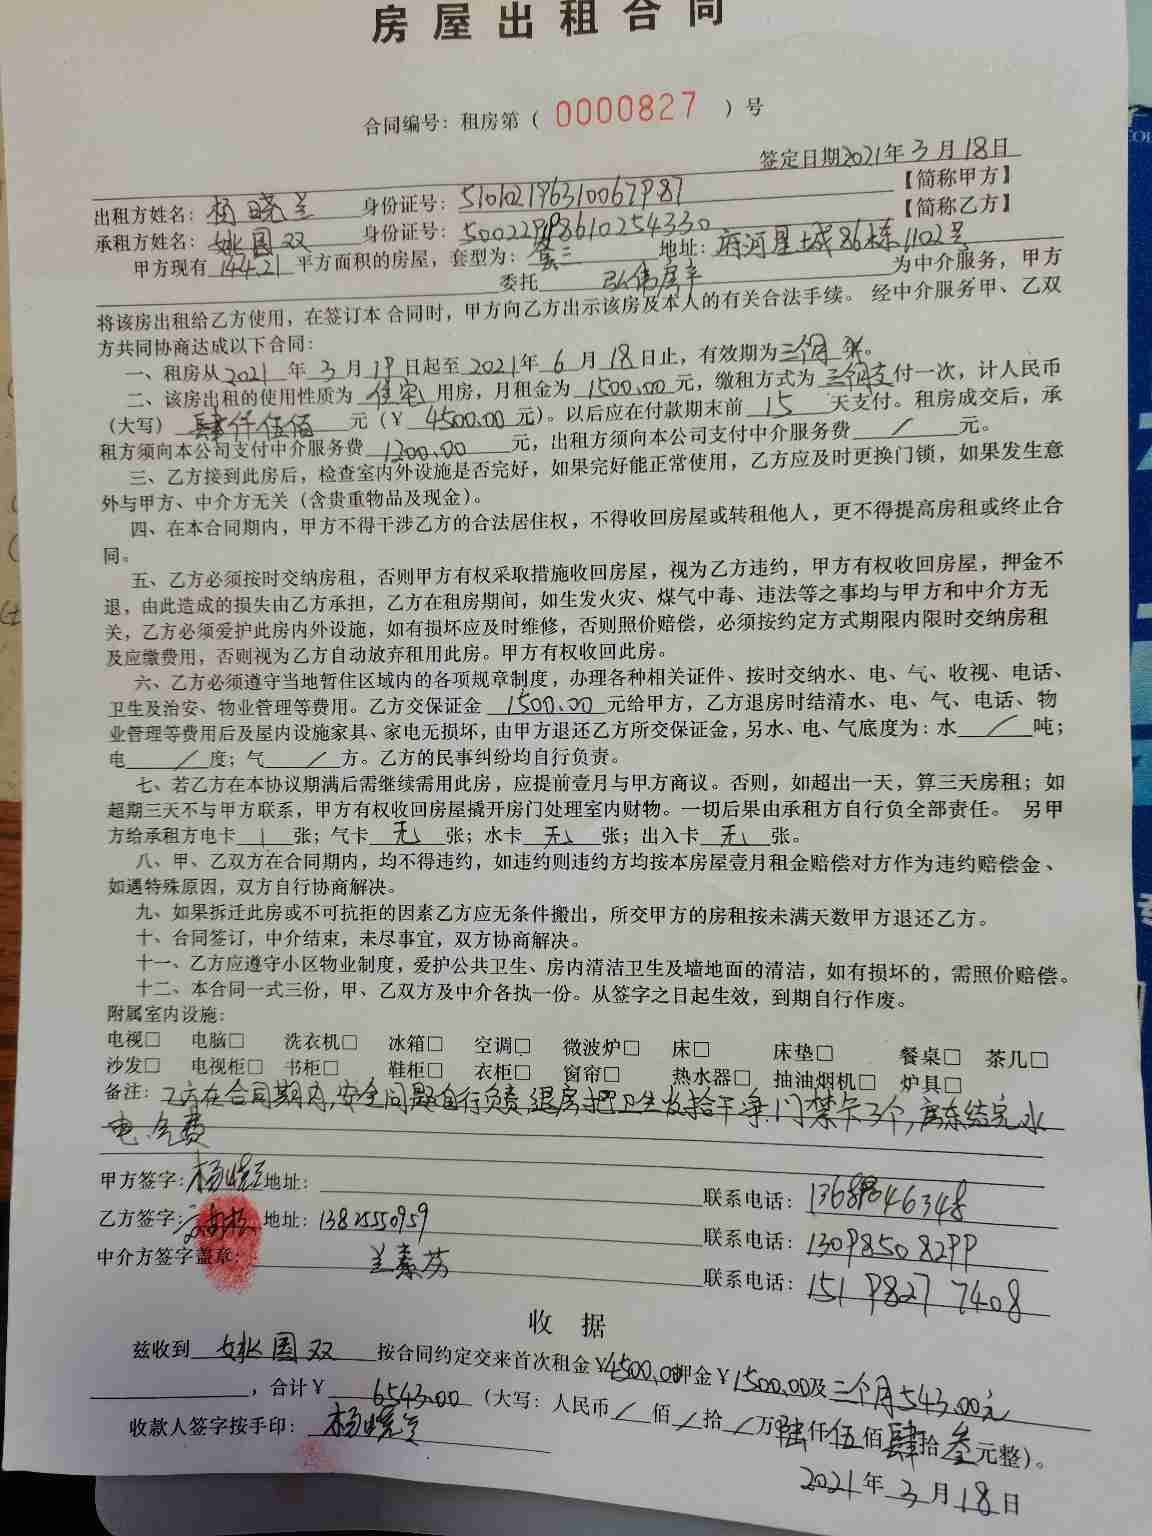 房屋出租合同
合同编号：租房第（ 0000827 ）号
签定日期2021年3月18日
出租方姓名：杨晓兰 身份证号：510102196310067987 【简称甲方】
承租方姓名：姚国双 身份证号： 【简称乙方】
甲方现有 144.21 平方面积的房屋，套型为：套三 地址：府河星城86栋1102号
委托 弘伟房产 为中介服务，甲方
将该房出租给乙方使用，在签订本合同时，甲方向乙方出示该房及本人的有关合法手续。经中介服务甲、乙双
方共同协商达成以下合同：
一、租房从2021年3月19日起至2021年6月18日止，有效期为三个月。
二、该房出租的使用性质为 住宅 用房，月租金为 1500.00 元，缴租方式为 三个月支付一次，计人民币
（大写） 肆仟伍佰 元（￥ 4500.00 元）。以后应在付款期末前 15 天支付。租房成交后，承
租方须向本公司支付中介服务费 1200.00 元，出租方须向本公司支付中介服务费 / 元。
三、乙方接到此房后，检查室内外设施是否完好，如果完好能正常使用，乙方应及时更换门锁，如果发生意
外与甲方、中介方无关（含贵重物品及现金）。
四、在本合同期内，甲方不得干涉乙方的合法居住权，不得收回房屋或转租他人，更不得提高房租或终止合
同。
五、乙方必须按时交纳房租，否则甲方有权采取措施收回房屋，视为乙方违约，甲方有权收回房屋，押金不
退，由此造成的损失由乙方承担，乙方在租房期间，如生发火灾、煤气中毒、违法等之事均与甲方和中介方无
关，乙方必须爱护此房内外设施，如有损坏应及时维修，否则照价赔偿，必须按约定方式期限内限时交纳房租
及应缴费用，否则视为乙方自动放弃租用此房。甲方有权收回此房。
六、乙方必须遵守当地暂住区域内的各项规章制度，办理各种相关证件、按时交纳水、电、气、收视、电话、
卫生及治安、物业管理等费用。乙方交保证金 1500.00 元给甲方，乙方退房时结清水、电、气、电话、物
业管理等费用后及屋内设施家具、家电无损坏，由甲方退还乙方所交保证金，另水、电、气底度为：水 / 吨；
电 / 度；气 / 方。乙方的民事纠纷均自行负责。
七、若乙方在本协议期满后需继续需用此房，应提前壹月与甲方商议。否则，如超出一天，算三天房租；如
超期三天不与甲方联系，甲方有权收回房屋撬开房门处理室内财物。一切后果由承租方自行负全部责任。 另甲
方给承租方电卡 1 张；气卡 无 张；水卡 无 张；出入卡 无 张。
八、甲、乙双方在合同期内，均不得违约，如违约则违约方均按本房屋壹月租金赔偿对方作为违约赔偿金、
如遇特殊原因，双方自行协商解决。
九、如果拆迁此房或不可抗拒的因素乙方应无条件搬出，所交甲方的房租按未满天数甲方退还乙方。
十、合同签订，中介结束，未尽事宜，双方协商解决。
十一、乙方应遵守小区物业制度，爱护公共卫生、房内清洁卫生及墙地面的清洁，如有损坏的，需照价赔偿。
十二、本合同一式三份，甲、乙双方及中介各执一份。从签字之日起生效，到期自行作废。
附属室内设施：
电视□ 电脑□ 洗衣机□ 冰箱□ 空调□ 微波炉□ 床□ 床垫□ 餐桌□ 茶几□
沙发□ 电视柜□ 书柜□ 鞋柜□ 衣柜□ 窗帘□ 热水器□ 抽油烟机□ 炉具□
备注：乙方在合同期内，安全问题自行负责，退房把卫生收拾干净，门禁卡3个，房东结完水
电气费
甲方签字：杨晓兰 地址： 联系电话：
乙方签字： 地址：13825550959 联系电话：13098508299
中介方签字盖章：兰素芬 联系电话：15198277408
收 据
兹收到 姚国双 按合同约定交来首次租金￥4500.00押金￥1500.00及三个月543.00元
，合计￥ 6543.00 （大写：人民币/佰/拾/万陆仟伍佰肆拾叁元整）。
收款人签字按手印：杨晓兰
2021年3月18日